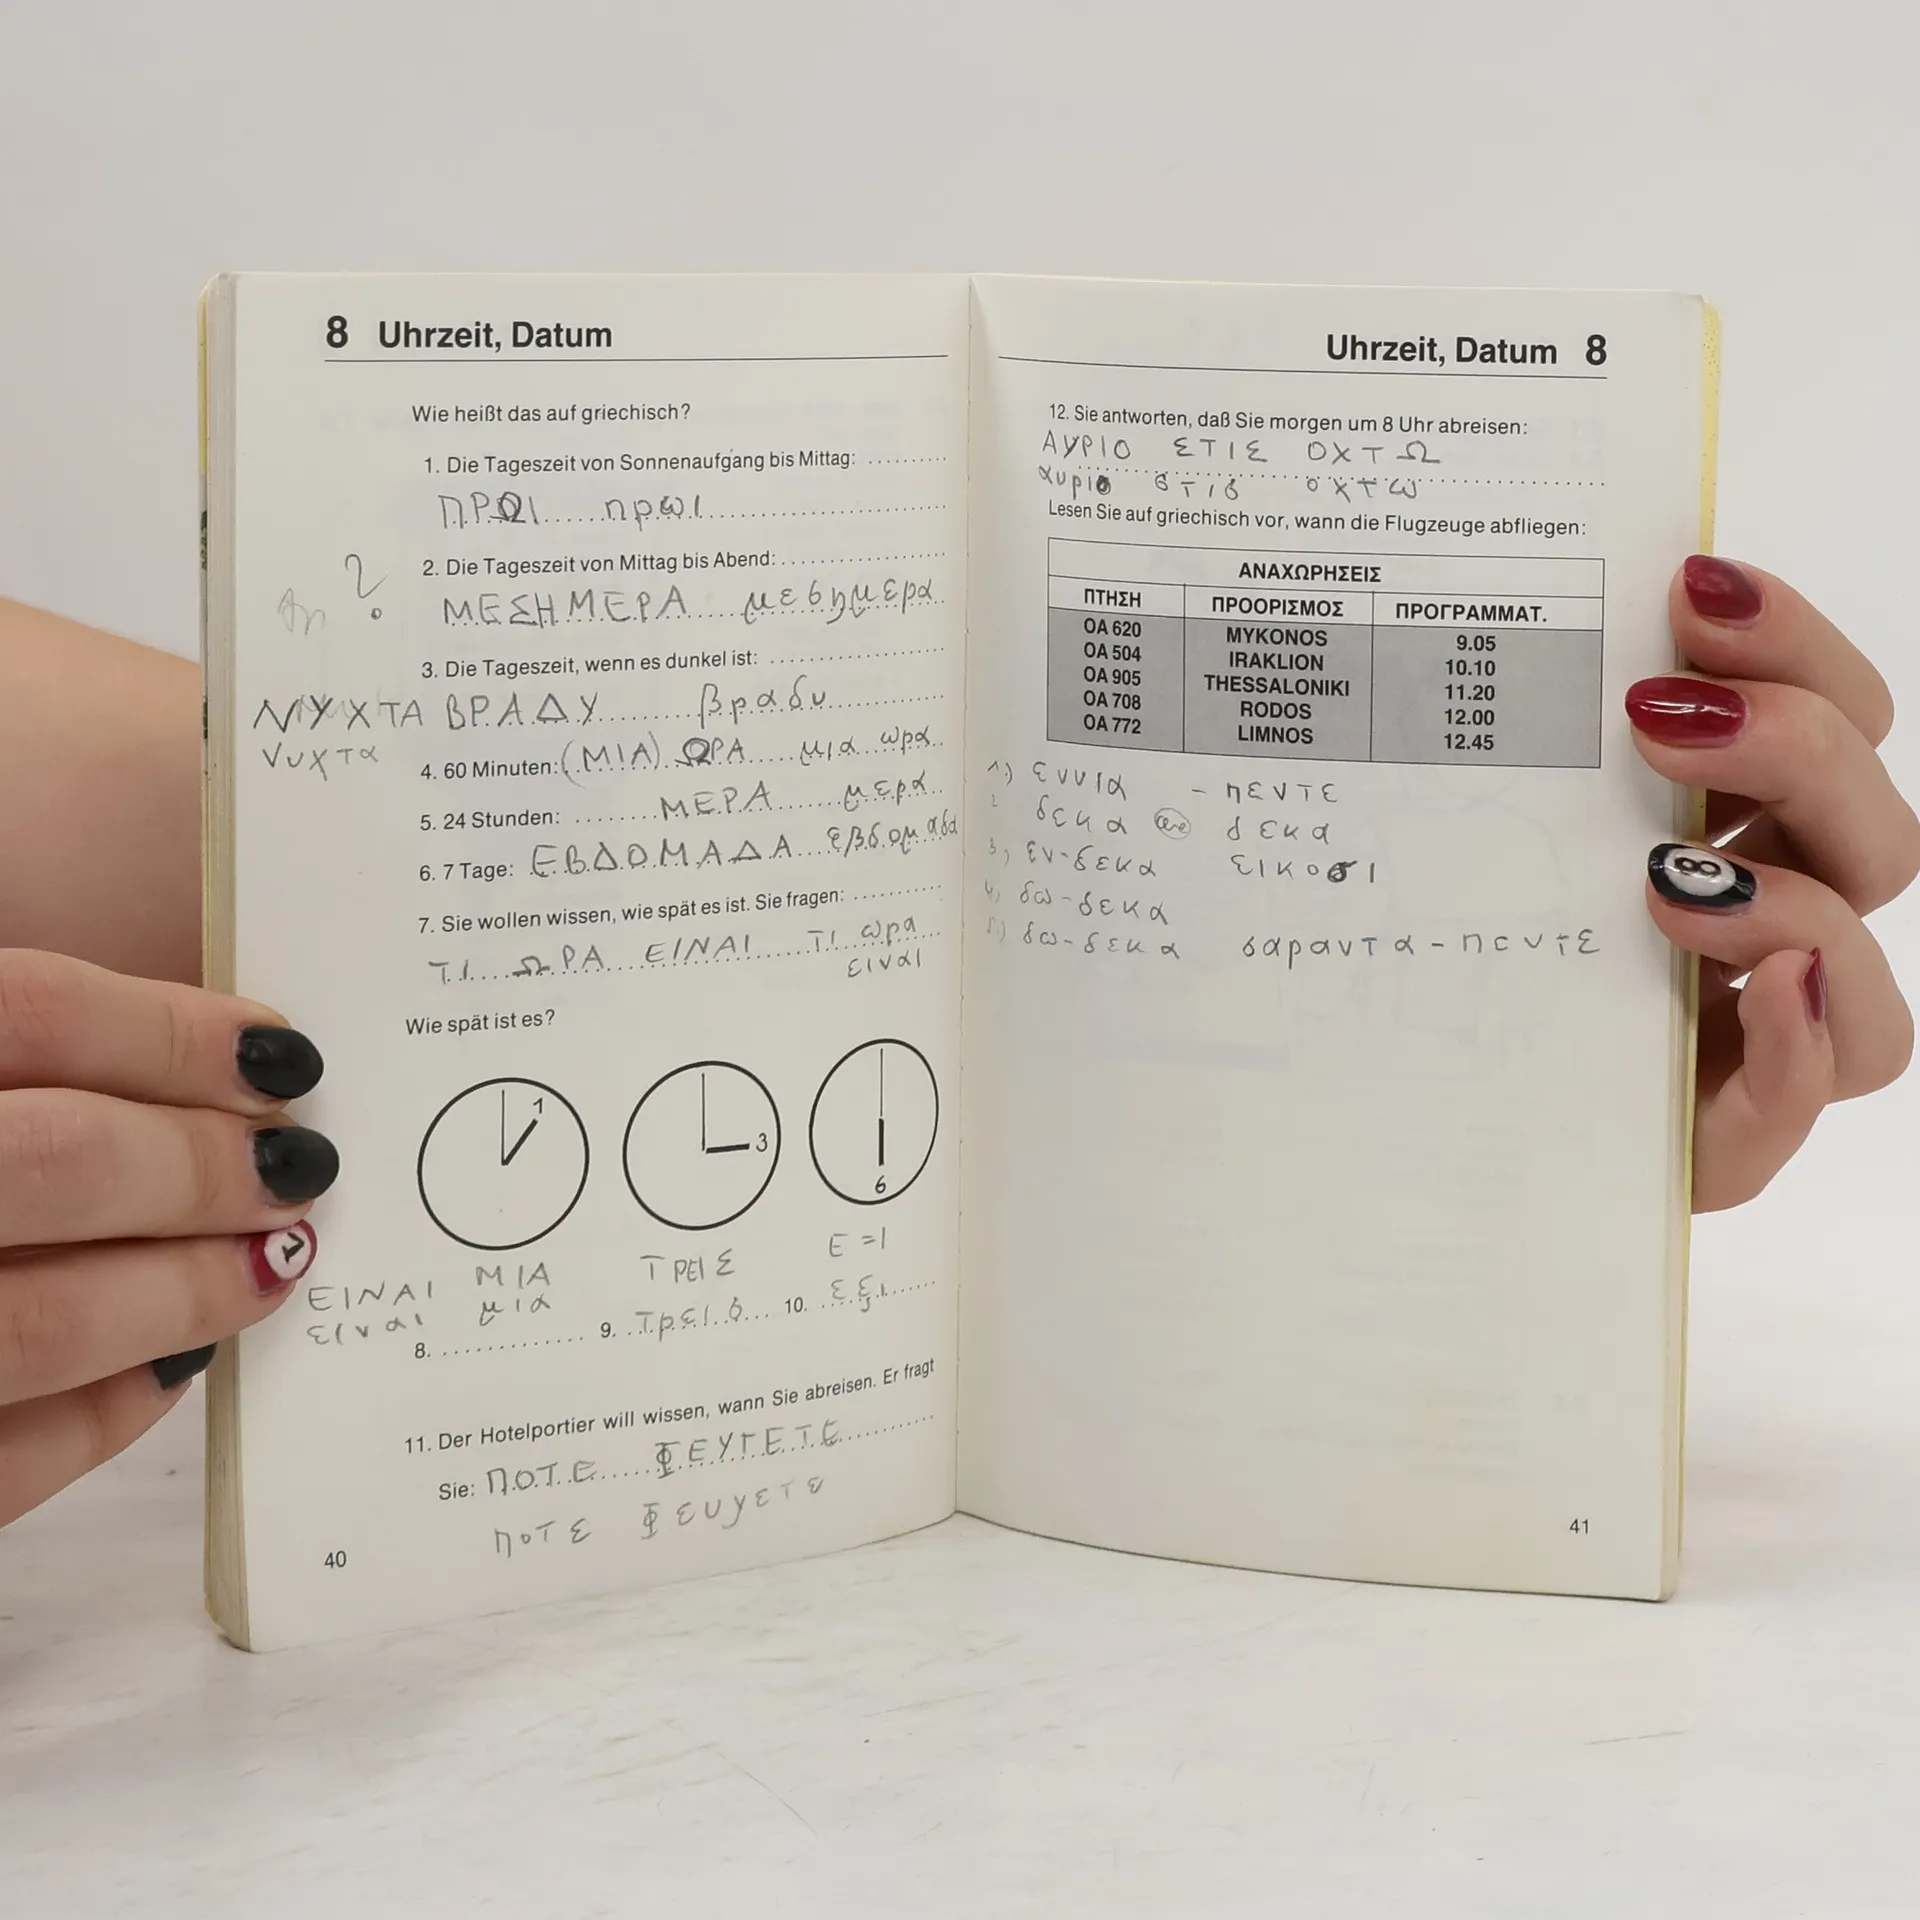 8 Uhrzeit, Datum
Wie heißt das auf griechisch?
1. Die Tageszeit von Sonnenaufgang bis Mittag: ..........
ΠΡΩΙ πρωι
2. Die Tageszeit von Mittag bis Abend: ..........
?
ΜΕΣΗΜΕΡΑ μεσημερα
3. Die Tageszeit, wenn es dunkel ist: ..........
ΝΥΧΤΑ ΒΡΑΔΥ βραδυ
νυχτα
4. 60 Minuten: (ΜΙΑ) ΩΡΑ μια ωρα
5. 24 Stunden: ΜΕΡΑ μερα
6. 7 Tage: ΕΒΔΟΜΑΔΑ εβδομαδα
7. Sie wollen wissen, wie spät es ist. Sie fragen: ..........
ΤΙ ΩΡΑ ΕΙΝΑΙ ΤΙ ωρα
ειναι
Wie spät ist es?
1 3 6
ΕΙΝΑΙ ΜΙΑ ΤΡΕΙΣ Ε=Ι
ειναι μια
8. .......... 9. τρεις 10. εξι
11. Der Hotelportier will wissen, wann Sie abreisen. Er fragt
Sie: ΠΟΤΕ ΦΕΥΓΕΤΕ
ποτε Φευγετε
40
Uhrzeit, Datum 8
12. Sie antworten, daß Sie morgen um 8 Uhr abreisen:
ΑΥΡΙΟ ΣΤΙΣ ΟΧΤΩ
αυριο στις οχτω
Lesen Sie auf griechisch vor, wann die Flugzeuge abfliegen:
ΑΝΑΧΩΡΗΣΕΙΣ
ΠΤΗΣΗ ΠΡΟΟΡΙΣΜΟΣ ΠΡΟΓΡΑΜΜΑΤ.
OA 620 MYKONOS 9.05
OA 504 IRAKLION 10.10
OA 905 THESSALONIKI 11.20
OA 708 RODOS 12.00
OA 772 LIMNOS 12.45
1.) εννια - πεντε
2 δεκα δεκα
3.) εν-δεκα εικοσι
4.) δω-δεκα
5.) δω-δεκα σαραντα - πεντε
41
1
8